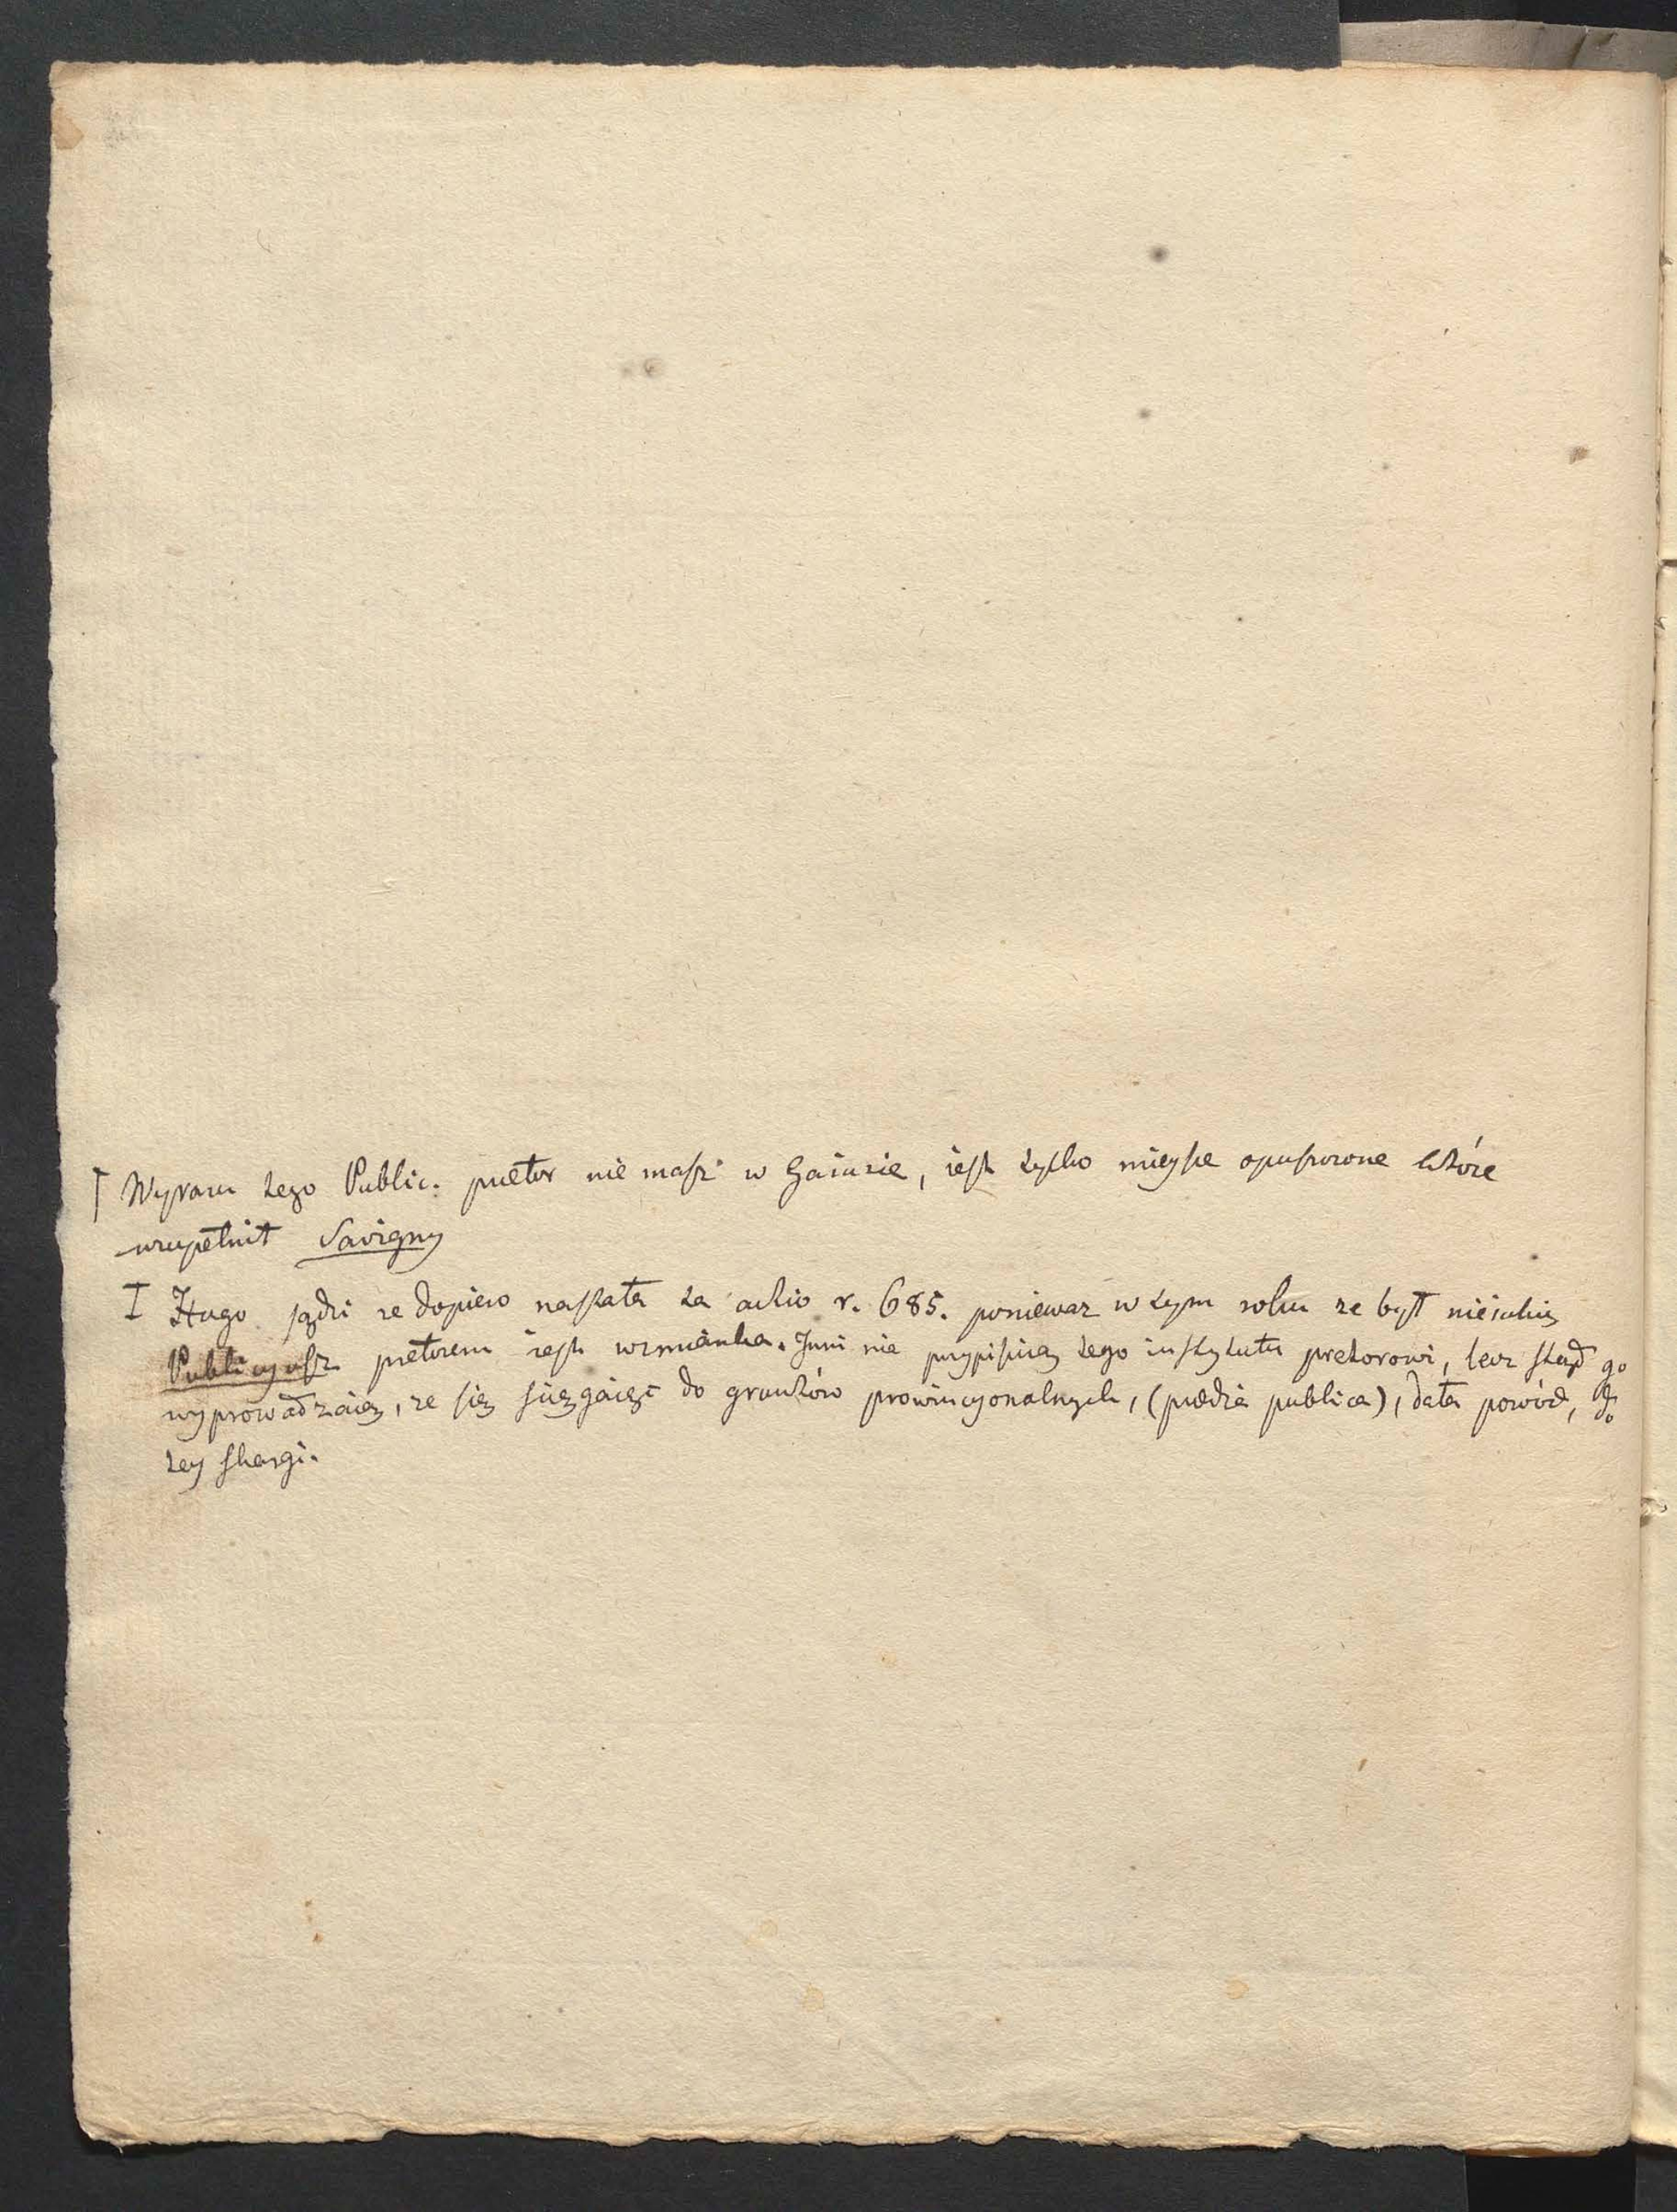 Wyrazu tego Public. pretor nie masz w Gaiusie, iest tylko mieysce opuszczone które
uzupełnił Savigny
I Hugo sądzi ze dopiero nastała ta actio r. 685. poniewaz w tym roku ze był nieiakiś
Publicyusz pretorem iest wzmianka. Inni nie przypisuią tego instytutu pretorowi, lecz stąd go
wyprowadzaią, ze się ściągaiąc do gruntów prowincyonalnych, (prædia publica), dała powód, do
tey skargi.